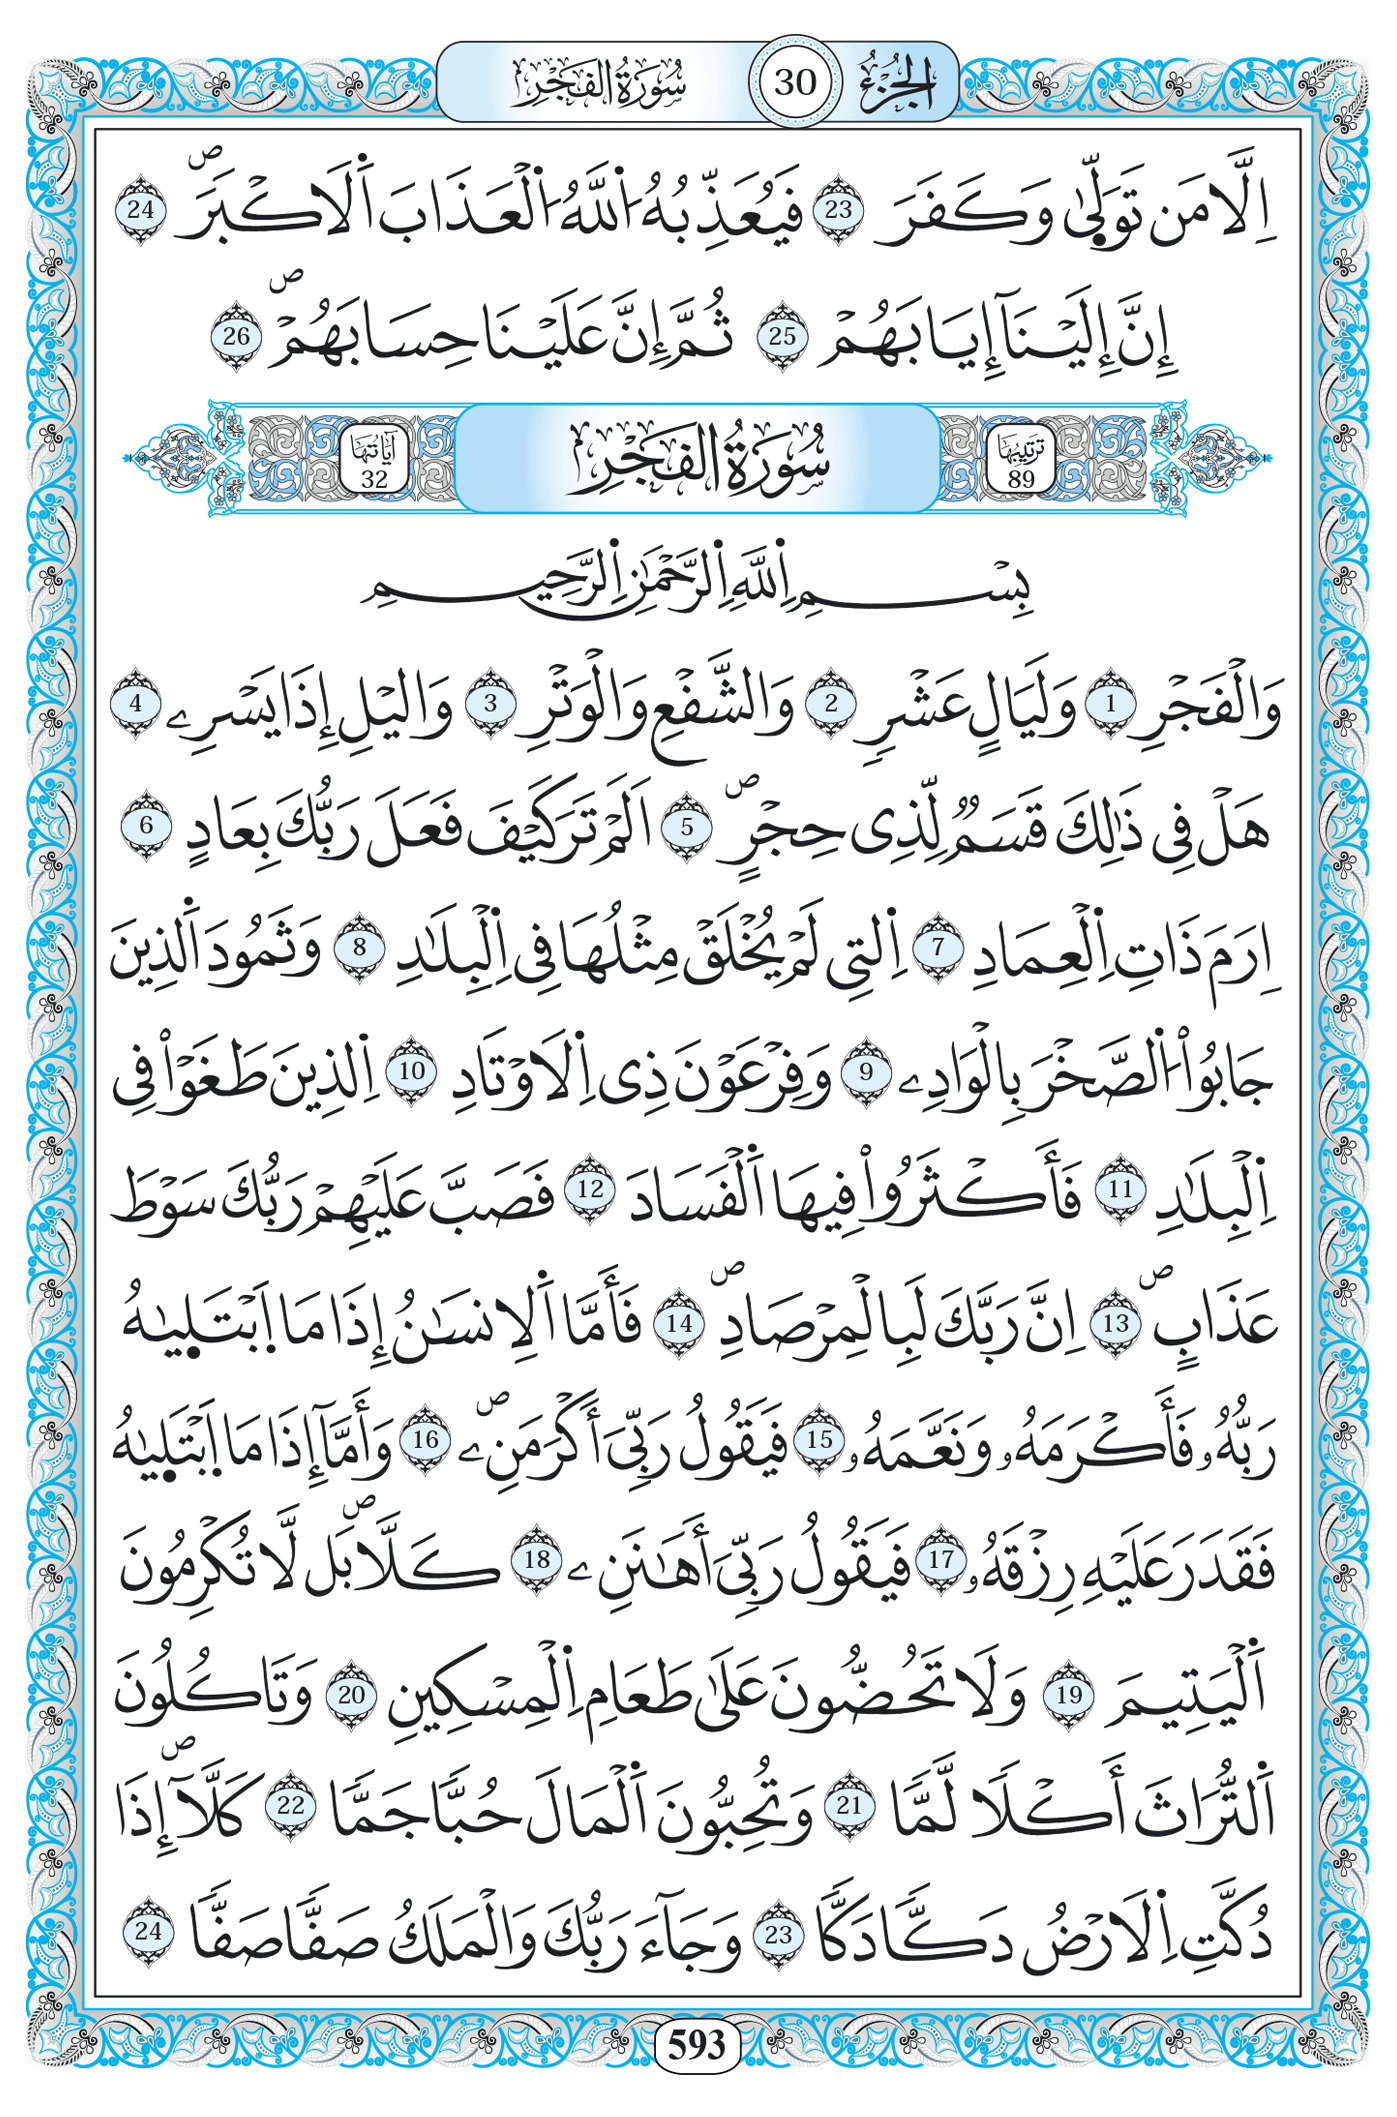 الجُزْءُ 30 سُورَةُ الفَجْرِ
اِلَّا مَن تَوَلّ۪يٰ وَكَفَرَ 23 فَيُعَذِّبُهُ اُ۬للَّهُ اُ۬لْعَذَابَ اَ۬لَاكْبَرَۖ 24
إِنَّ إِلَيْنَآ إِيَابَهُمْ 25 ثُمَّ إِنَّ عَلَيْنَا حِسَابَهُمْۖ 26
تَرْتِيبُهَا 89 سُورَةُ الفَجْرِ آيَاتُهَا 32
بِسْمِ اِ۬للَّهِ اِ۬لرَّحْمَٰنِ اِ۬لرَّحِيمِ
وَالْفَجْرِ 1 وَلَيَالٍ عَشْرٖ 2 وَالشَّفْعِ وَالْوَتْرِ 3 وَاليْلِ إِذَا يَسْرِۦ 4
هَلْ فِي ذَٰلِكَ قَسَمٞ لِّذِى حِجْرٍۖ 5 اَلَمْ تَرَ كَيْفَ فَعَلَ رَبُّكَ بِعَادٍ 6
اِرَمَ ذَاتِ اِ۬لْعِمَادِ 7 اِ۬لتِي لَمْ يُخْلَقْ مِثْلُهَا فِى اِ۬لْبِلَٰدِ 8 وَثَمُودَ اَ۬لذِينَ
جَابُواْ اُ۬لصَّخْرَ بِالْوَادِۦ 9 وَفِرْعَوْنَ ذِى اِ۬لَاوْتَادِ 10 اِ۬لذِينَ طَغَوْاْ فِى
اِ۬لْبِلَٰدِ 11 فَأَكْثَرُواْ فِيهَا اَ۬لْفَسَادَ 12 فَصَبَّ عَلَيْهِمْ رَبُّكَ سَوْطَ
عَذَابٍۖ 13 اِنَّ رَبَّكَ لَبِالْمِرْصَادِۖ 14 فَأَمَّا اَ۬لِانسَٰنُ إِذَا مَا اَ۪بْتَل۪يٰهُ
رَبُّهُۥ فَأَكْرَمَهُۥ وَنَعَّمَهُۥ 15 فَيَقُولُ رَبِّىَ أَكْرَمَنِۦۖ 16 وَأَمَّآ إِذَا مَا اَ۪بْتَل۪يٰهُ
فَقَدَرَ عَلَيْهِ رِزْقَهُۥ 17 فَيَقُولُ رَبِّىَ أَهَٰنَنِۦ 18 كَلَّاۖ بَل لَّا تُكْرِمُونَ
اَ۬لْيَتِيمَ 19 وَلَا تَحُضُّونَ عَلَىٰ طَعَامِ اِ۬لْمِسْكِينِ 20 وَتَاكُلُونَ
اَ۬لتُّرَاثَ أَكْلَا لَّمَّا 21 وَتُحِبُّونَ اَ۬لْمَالَ حُبَّا جَمَّا 22 كَلَّآۖ إِذَا
دُكَّتِ اِ۬لَارْضُ دَكَّا دَكَّا 23 وَجَآءَ رَبُّكَ وَالْمَلَكُ صَفَّا صَفَّا 24
593